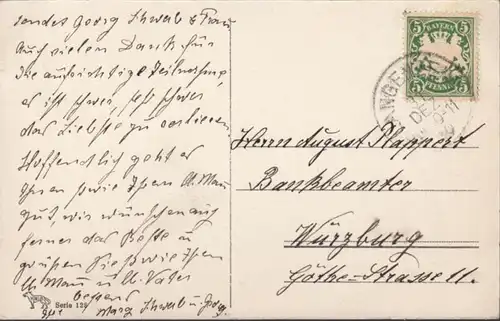 sendet Georg Schwab & Frau
Auch vielen Dank für
die aufrichtige Teilnahme,
es ist schwer, sehr schwer
das Liebste zu verlieren.
Hoffentlich geht es
Ihnen sowie Ihrer Mama
gut, wir wünschen auch
ferner das Beste u
grüßen Sie sowie Ihre
Mama u Vater
bestens
Marg. Schwab u. Georg.
Serie 128
BAYERN
5 5
PFENNIG
DEZ
9-11
Herrn August Plappert
Bankbeamter
Würzburg
Göthe-Strasse 11.